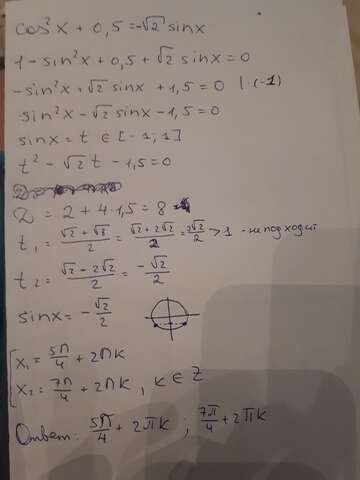 cos²x + 0,5 = -√2 sinx
1 - sin²x + 0,5 + √2 sinx = 0
-sin²x + √2 sinx + 1,5 = 0 | · (-1)
sin²x - √2 sinx - 1,5 = 0
sinx = t ∈ [-1; 1]
t² - √2 t - 1,5 = 0
D = 2 + 4 · 1,5 = 8
t₁ = (√2 + √8)/2 = (√2 + 2√2)/2 = 3√2/2 > 1 - не подходит
t₂ = (√2 - 2√2)/2 = -√2/2
sinx = -√2/2
x₁ = 5π/4 + 2πk
x₂ = 7π/4 + 2πk, k ∈ Z
Ответ: 5π/4 + 2πk ; 7π/4 + 2πk